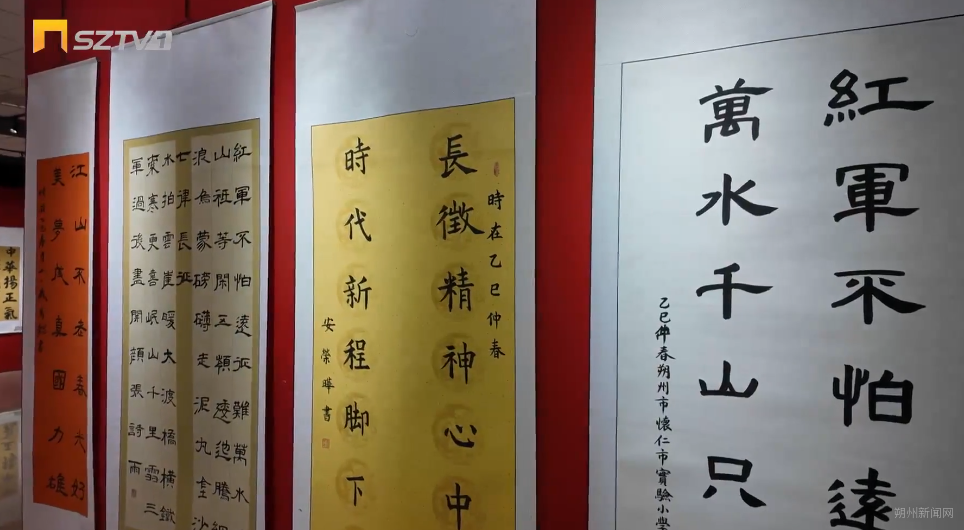 SZTV1
中華揚正氣
江山不老春大好
美夢成真國力雄
紅軍不怕遠征難萬水
山祗等閑五嶺逶迤騰細
浪烏蒙磅礴走泥丸金沙
七律長征
水拍雲崖暖大渡橋橫鐵
索寒更喜岷山千里雪三
軍過後盡開顏張詩雨
時在乙巳仲春
長徵精神心中
時代新程脚下
安榮暐書
紅軍不怕遠
萬水千山只
乙巳仲春朔州市懷仁市實驗小學
朔州新闻网